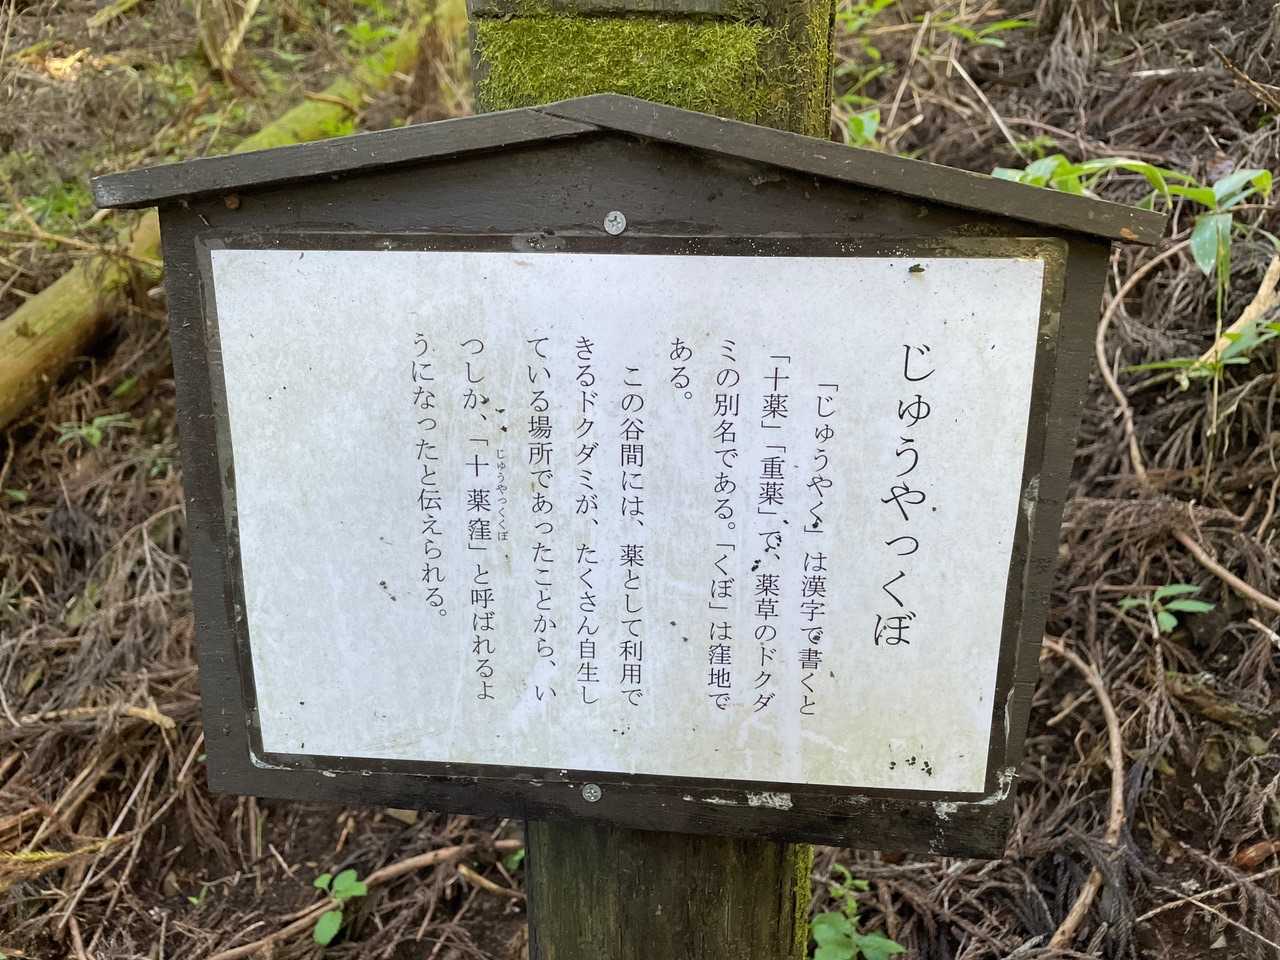 じゅうやっくぼ
「じゅうやく」は漢字で書くと
「十薬」「重薬」で、薬草のドクダ
ミの別名である。「くぼ」は窪地で
ある。
この谷間には、薬として利用で
きるドクダミが、たくさん自生し
ている場所であったことから、い
つしか、「十薬窪」と呼ばれるよ
じゅうやっくぼ
うになったと伝えられる。